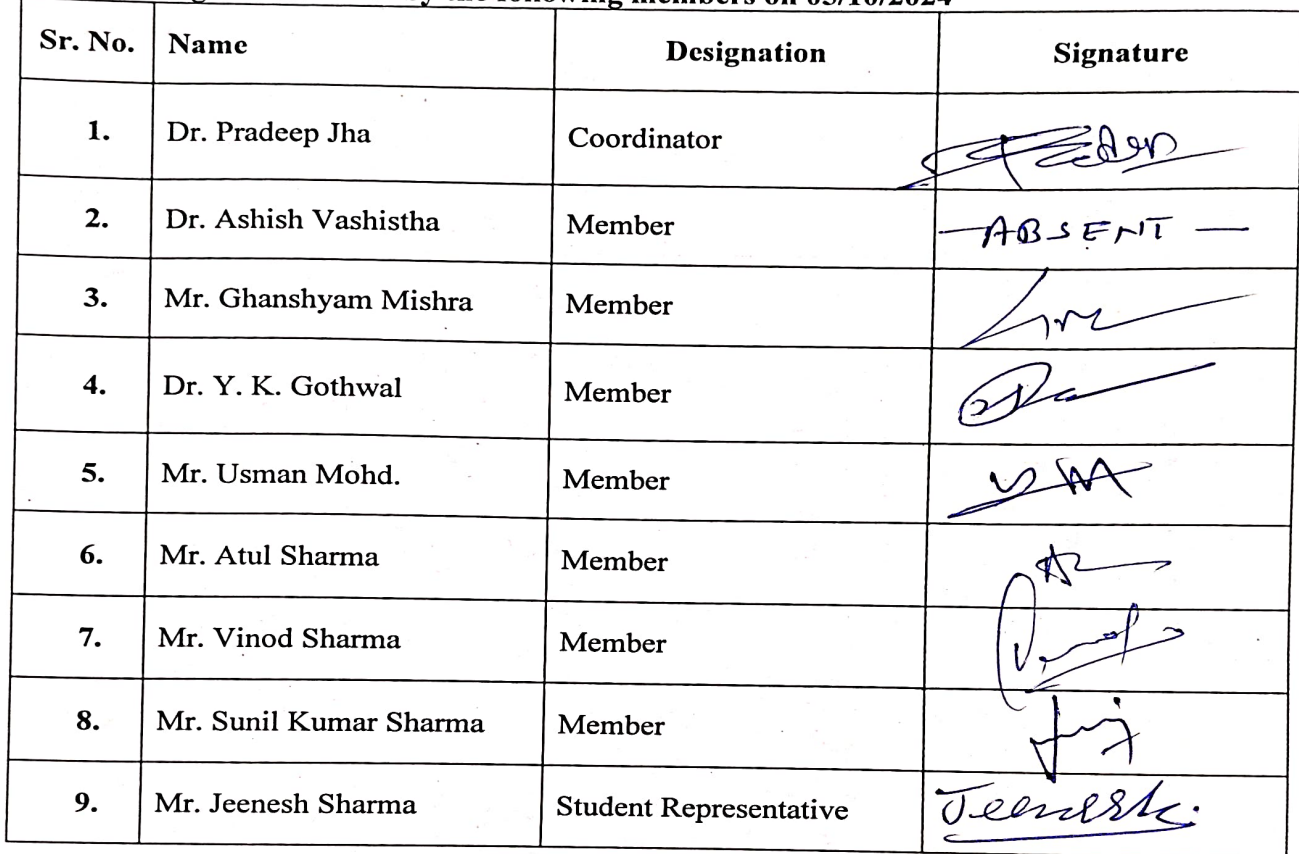 by the following members on 03/10/2024
Sr. No. Name Designation Signature
1. Dr. Pradeep Jha Coordinator
2. Dr. Ashish Vashistha Member -ABSENT-
3. Mr. Ghanshyam Mishra Member
4. Dr. Y. K. Gothwal Member
5. Mr. Usman Mohd. Member
6. Mr. Atul Sharma Member
7. Mr. Vinod Sharma Member
8. Mr. Sunil Kumar Sharma Member
9. Mr. Jeenesh Sharma Student Representative Jeenesh.